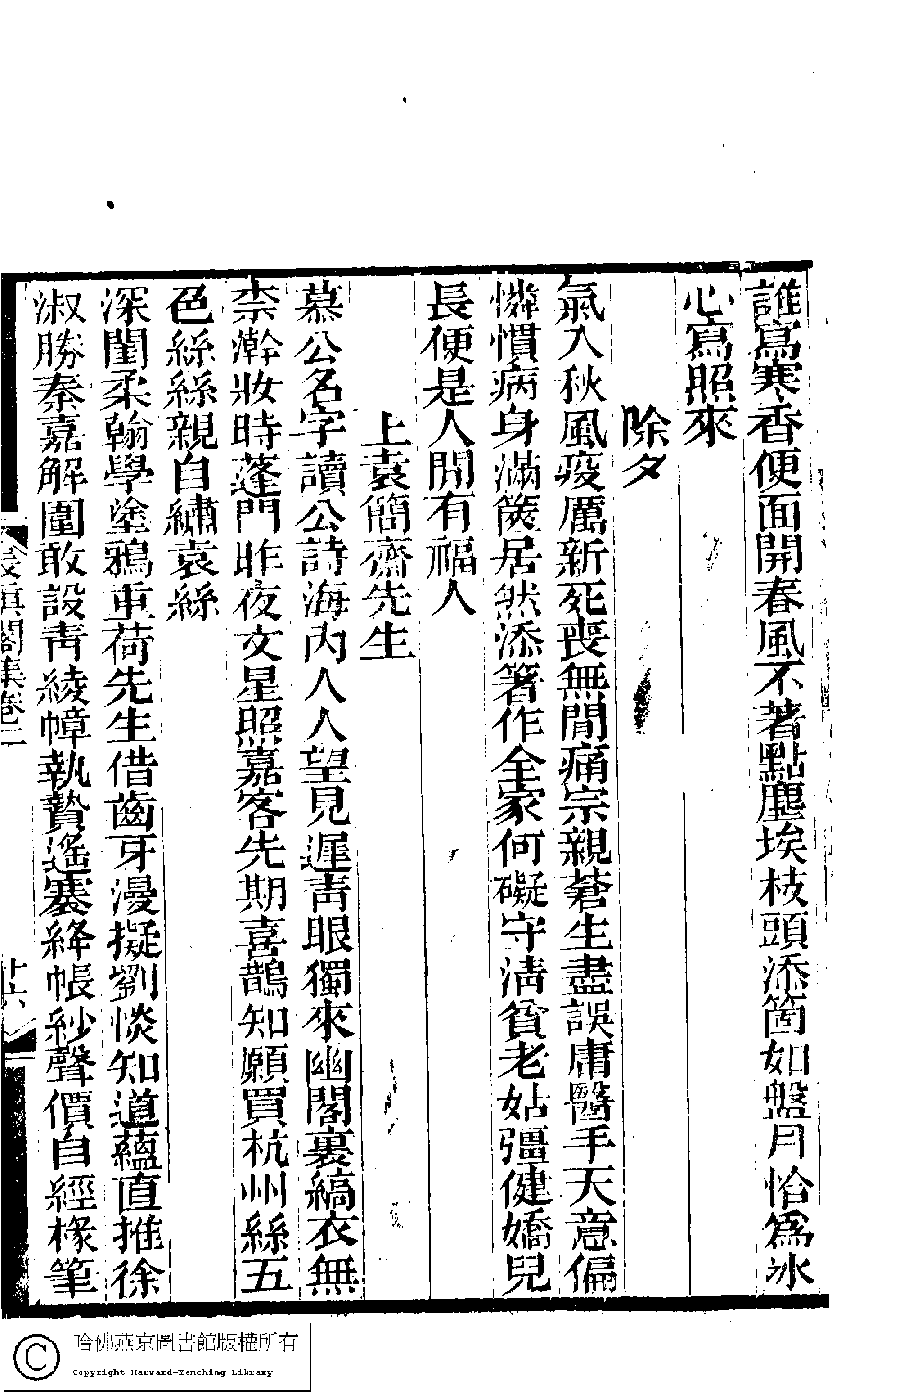 誰寫寒香便面開春風不著點塵埃枝頭添箇如盤月恰爲冰
心寫照來
除夕
氣入秋風疫厲新死喪無閒痛宗親蒼生盡誤庸醫手天意偏
憐慣病身滿篋居然添箸作全家何礙守淸貧老姑彊健嬌兒
長便是人閒有福人
上袁簡齋先生
慕公名字讀公詩海內人人望見遲靑眼獨來幽閣裏縞衣無
柰澣妝時蓬門昨夜文星照嘉客先期喜鵲知願買杭州絲五
色絲絲親自繡袁絲
深閨柔翰學塗鴉重荷先生借齒牙漫擬劉惔知道蘊直推徐
淑勝秦嘉解圍敢設靑綾幛執贄遙褰絳帳紗聲價自經椽筆
長真閣集卷二
廿六
哈佛燕京圖書館版權所有
Copyright Harvard-Yenching Library